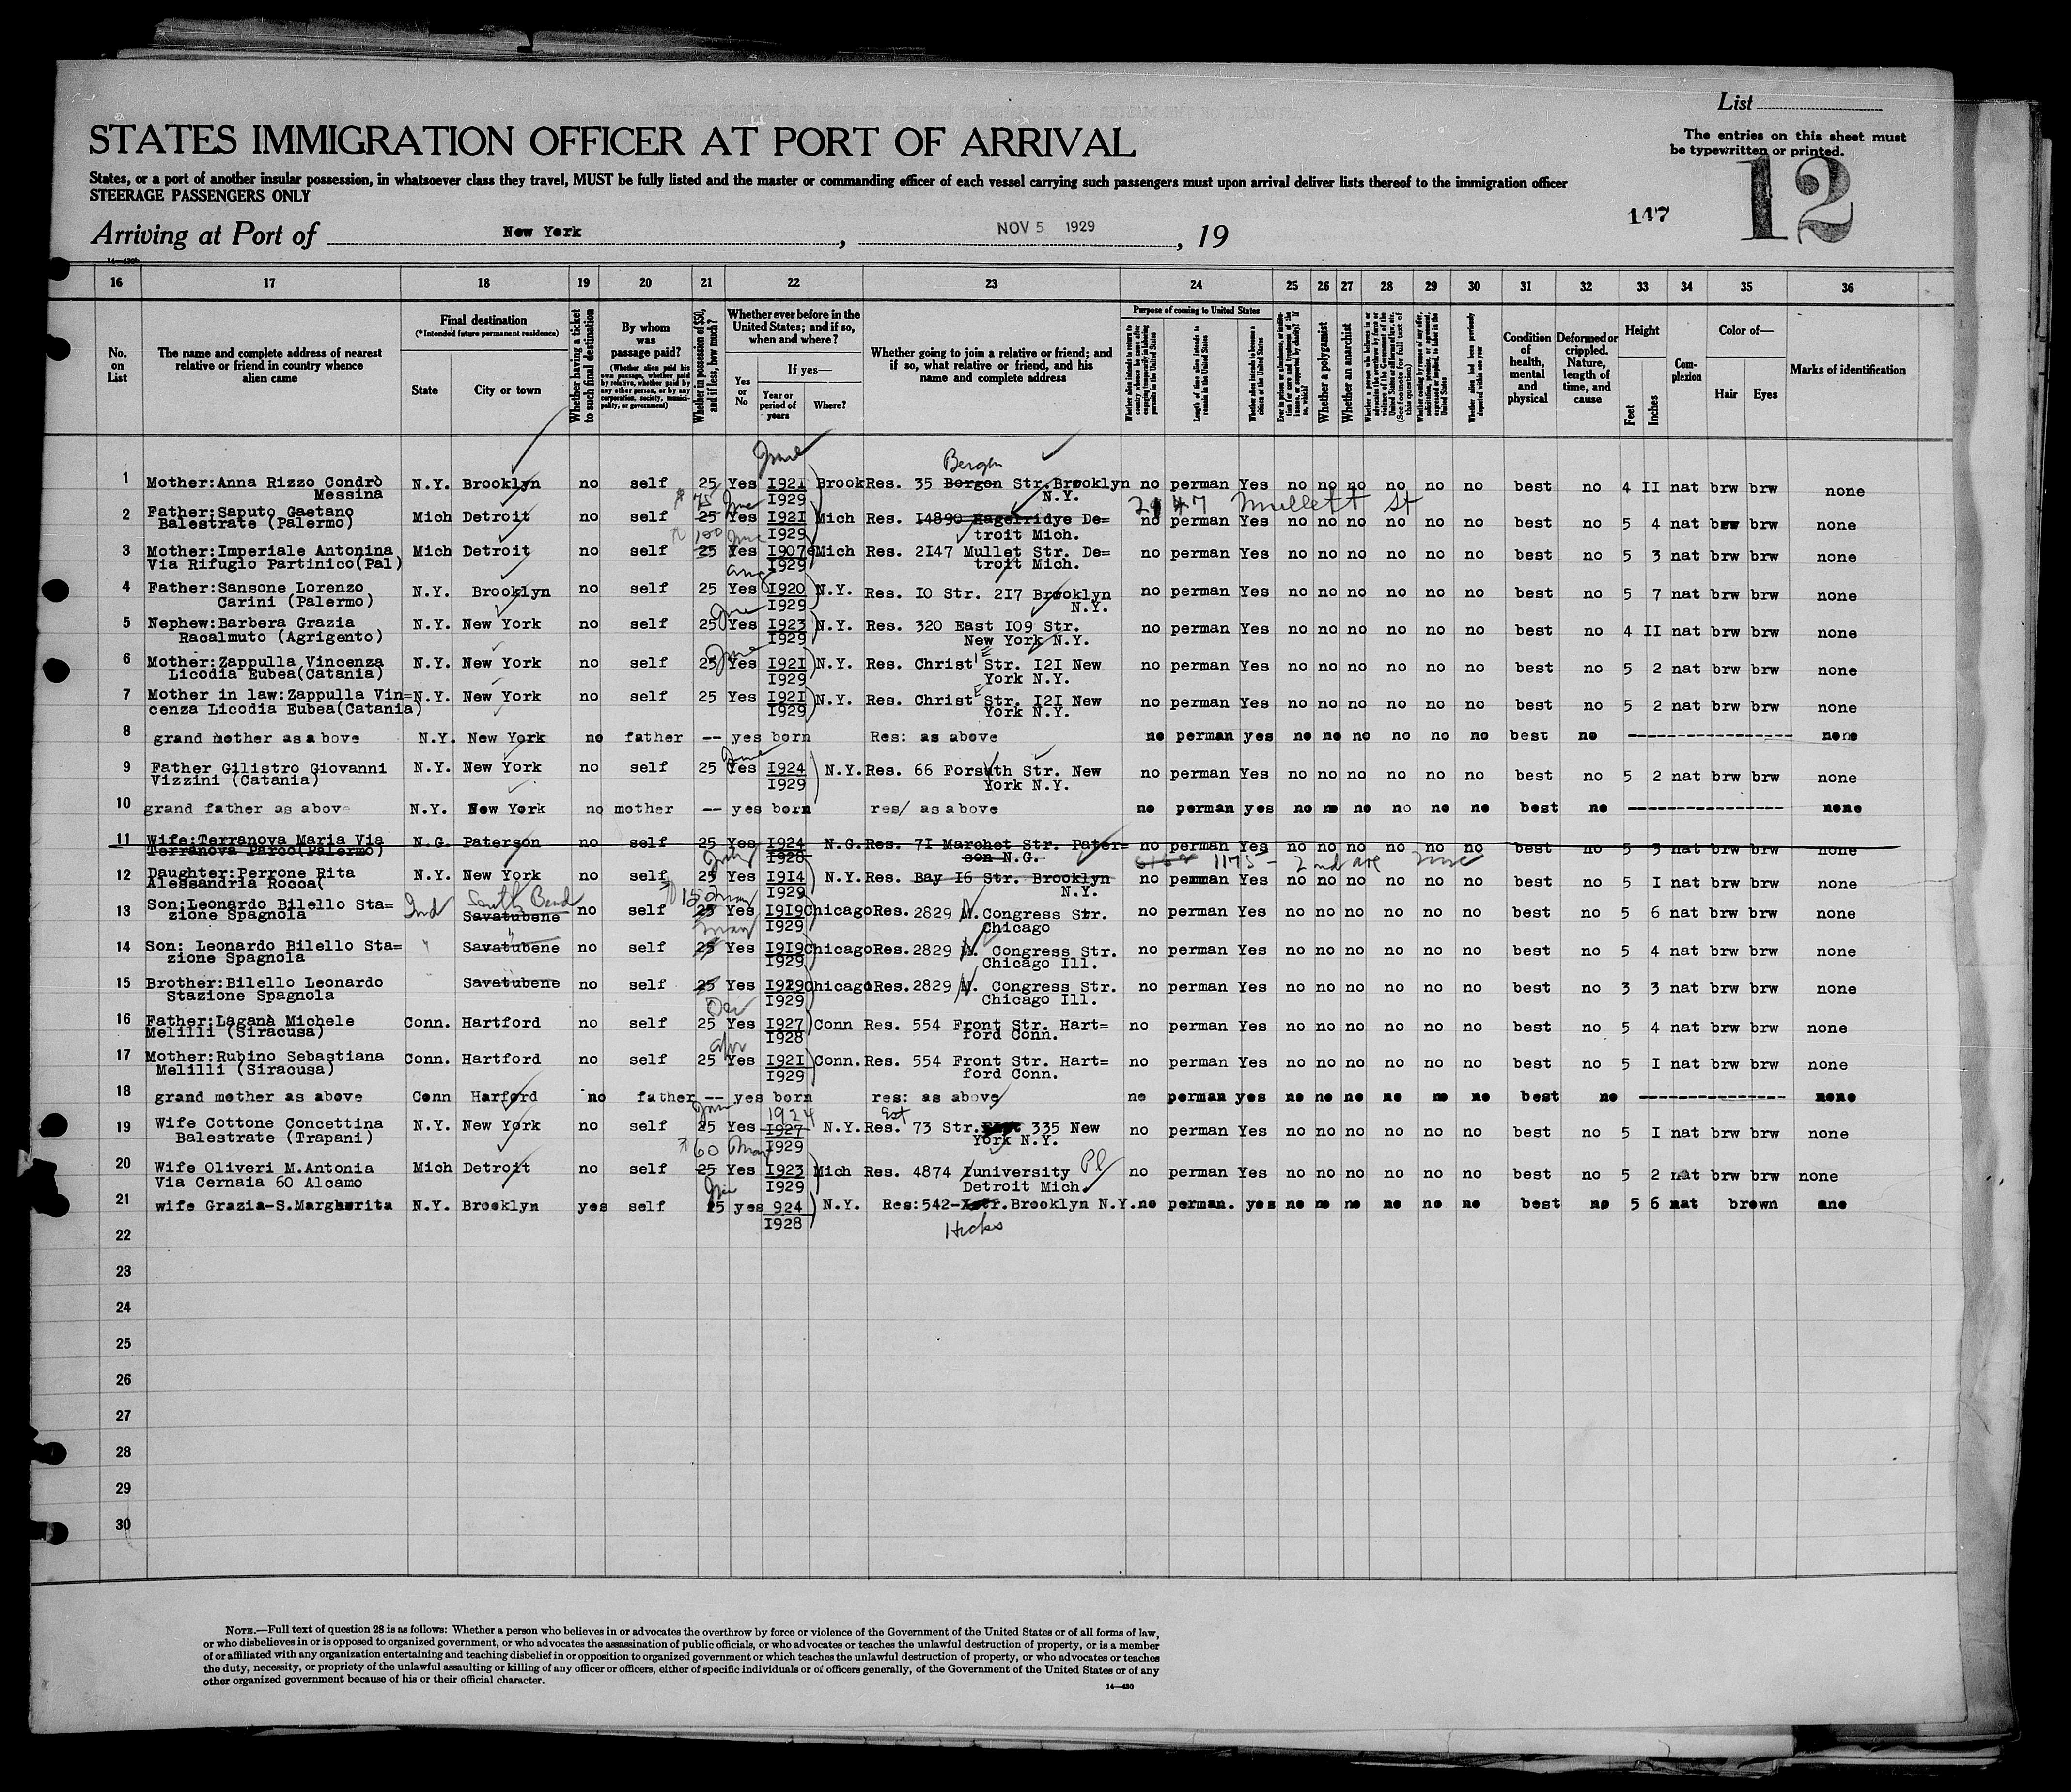 List
STATES IMMIGRATION OFFICER AT PORT OF ARRIVAL
The entries on this sheet must
be typewritten or printed.
States, or a port of another insular possession, in whatsoever class they travel, MUST be fully listed and the master or commanding officer of each vessel carrying such passengers must upon arrival deliver lists thereof to the immigration officer
STEERAGE PASSENGERS ONLY
147
12
Arriving at Port of New York, NOV 5 1929, 19
16 17 18 19 20 21 22 23 24 25 26 27 28 29 30 31 32 33 34 35 36
No. on List
The name and complete address of nearest relative or friend in country whence alien came
Final destination
(*Intended future permanent residence)
State
City or town
Whether having a ticket to such final destination
By whom was passage paid?
(Whether alien paid his own passage, whether paid by relative, whether paid by any other person, or by any corporation, society, municipality, or government)
Whether in possession of $50, and if less, how much?
Whether ever before in the United States; and if so, when and where?
Yes or No
If yes—
Year or period of years
Where?
Whether going to join a relative or friend; and if so, what relative or friend, and his name and complete address
Purpose of coming to United States
Length of time alien intends to remain in the United States
Whether alien intends to become a citizen of the United States
Whether a polygamist
Whether an anarchist
Whether alien had been previously deported within one year
Condition of health, mental and physical
Deformed or crippled. Nature, length of time, and cause
Height
Feet
Inches
Complexion
Color of—
Hair
Eyes
Marks of identification
June
Bergen
1 Mother:Anna Rizzo Condrò N.Y. Brooklyn no self 25 Yes I921 Brook Res. 35 Borgon Str.Brooklyn no perman Yes no no no no no no best no 4 II nat brw brw none
Messina I929 N.Y.
75 June 2147 Mullett St
2 Father:Saputo Gaetano Mich Detroit no self 25 Yes I92I Mich Res. I4890 Hagelridye De= no perman Yes no no no no no no best no 5 4 nat brw brw none
Balestrate (Palermo) I929 troit Mich.
100 June
3 Mother:Imperiale Antonina Mich Detroit no self 25 Yes I907 Mich Res. 2I47 Mullet Str. De= no perman Yes no no no no no no best no 5 3 nat brw brw none
Via Rifugio Partinico(Pal) I929 troit Mich.
Aug
4 Father:Sansone Lorenzo N.Y. Brooklyn no self 25 Yes I920 N.Y. Res. IO Str. 2I7 Brooklyn no perman Yes no no no no no no best no 5 7 nat brw brw none
Carini (Palermo) I929 N.Y.
June
5 Nephew:Barbera Grazia N.Y. New York no self 25 Yes I923 N.Y. Res. 320 East I09 Str. no perman Yes no no no no no no best no 4 II nat brw brw none
Racalmuto (Agrigento) I929 New York N.Y.
June
6 Mother:Zappulla Vincenza N.Y. New York no self 25 Yes I92I N.Y. Res. Christ Str. I2I New no perman Yes no no no no no no best no 5 2 nat brw brw none
Licodia Eubea(Catania) I929 York N.Y.
7 Mother in law:Zappulla Vin= N.Y. New York no self 25 Yes I92I N.Y. Res. Christ Str. I2I New no perman Yes no no no no no no best no 5 2 nat brw brw none
cenza Licodia Eubea(Catania) I929 York N.Y.
8 grand mother as a bove N.Y. New York no father -- yes born Res: as above no perman yes no no no no no no best no ---------------- none
June
9 Father Gilistro Giovanni N.Y. New York no self 25 Yes I924 N.Y. Res. 66 Forsuth Str. New no perman Yes no no no no no no best no 5 2 nat brw brw none
Vizzini (Catania) I929 York N.Y.
10 grand father as above N.Y. New York no mother -- yes born res/ as above no perman yes no no no no no no best no ---------------- none
11 Wife:Terranova Maria Via N.G. Paterson no self 25 Yes I924 N.G. Res. 7I Marchet Str. Pater= no perman Yes no no no no no no best no 5 3 nat brw brw none
Terranova Parco(Palermo) I928 son N.G.
July 1175 - 2nd ave
12 Daughter:Perrone Rita N.Y. New York no self 25 Yes I9I4 N.Y. Res. Bay I6 Str. Brooklyn no perman Yes no no no no no no best no 5 I nat brw brw none
Alessandria Rocca( I929 N.Y.
South Bend
May
13 Son:Leonardo Bilello Sta= Ind Savatubene no self 25 Yes I9I9 Chicago Res. 2829 N. Congress Str. no perman Yes no no no no no no best no 5 6 nat brw brw none
zione Spagnola I929 Chicago
May
14 Son: Leonardo Bilello Sta= " Savatubene no self 25 Yes I9I9 Chicago Res. 2829 N. Congress Str. no perman Yes no no no no no no best no 5 4 nat brw brw none
zione Spagnola I929 Chicago Ill.
15 Brother:Bilello Leonardo Savatubene no self 25 Yes I929 Chicago Res. 2829 N. Congress Str. no perman Yes no no no no no no best no 3 3 nat brw brw none
Stazione Spagnola I929 Chicago Ill.
Dec
16 Father:Laganà Michele Conn. Hartford no self 25 Yes I927 Conn Res. 554 Front Str. Hart= no perman Yes no no no no no no best no 5 4 nat brw brw none
Melilli (Siracusa) I928 ford Conn.
Apr
17 Mother:Rubino Sebastiana Conn. Hartford no self 25 Yes I92I Conn. Res. 554 Front Str. Hart= no perman Yes no no no no no no best no 5 I nat brw brw none
Melilli (Siracusa) I929 ford Conn.
18 grand mother as above Conn Harford no father -- yes born res: as above no perman yes no no no no no no best no ---------------- none
June 1924 Est
19 Wife Cottone Concettina N.Y. New York no self 25 Yes I927 N.Y. Res. 73 Str. 335 New no perman Yes no no no no no no best no 5 I nat brw brw none
Balestrate (Trapani) I929 York N.Y.
60 May
20 Wife Oliveri M.Antonia Mich Detroit no self 25 Yes I923 Mich Res. 4874 university Pl no perman Yes no no no no no no best no 5 2 nat brw brw none
Via Cernaia 60 Alcamo I929 Detroit Mich.
21 wife Grazia-S.Margherita N.Y. Brooklyn yes self 25 yes 924 N.Y. Res:542- str.Brooklyn N.Y. no perman. yes no no no no no no best no 5 6 nat brown one
I928 Hicks
22
23
24
25
26
27
28
29
30
NOTE.—Full text of question 28 is as follows: Whether a person who believes in or advocates the overthrow by force or violence of the Government of the United States or of all forms of law,
or who disbelieves in or is opposed to organized government, or who advocates the assassination of public officials, or who advocates or teaches the unlawful destruction of property, or is a member
of or affiliated with any organization entertaining and teaching disbelief in or opposition to organized government or which teaches the unlawful destruction of property, or who advocates or teaches
the duty, necessity, or propriety of the unlawful assaulting or killing of any officer or officers, either of specific individuals or of officers generally, of the Government of the United States or of any
other organized government because of his or their official character.
14—430